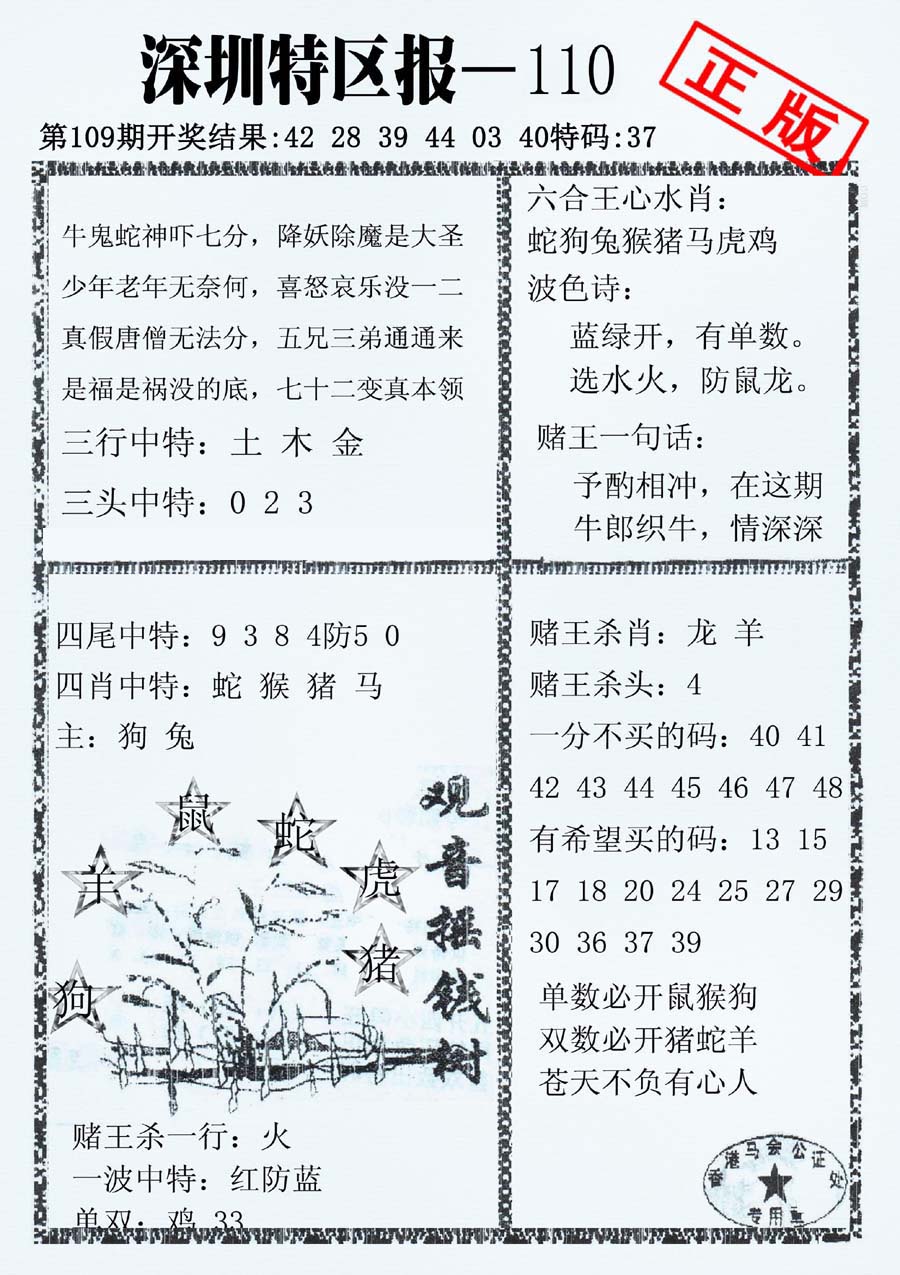 深圳特区报—110
正版
第109期开奖结果:42 28 39 44 03 40特码:37
牛鬼蛇神吓七分，降妖除魔是大圣
少年老年无奈何，喜怒哀乐没一二
真假唐僧无法分，五兄三弟通通来
是福是祸没的底，七十二变真本领
三行中特：土 木 金
三头中特：0 2 3
六合王心水肖：
蛇狗兔猴猪马虎鸡
波色诗：
蓝绿开，有单数。
选水火，防鼠龙。
赌王一句话：
予酌相冲，在这期
牛郎织牛，情深深
四尾中特：9 3 8 4防5 0
四肖中特：蛇 猴 猪 马
主：狗 兔
鼠
蛇
羊
虎
猪
狗
观音摇钱树
赌王杀一行：火
一波中特：红防蓝
单双：鸡 33
赌王杀肖：龙 羊
赌王杀头：4
一分不买的码：40 41
42 43 44 45 46 47 48
有希望买的码：13 15
17 18 20 24 25 27 29
30 36 37 39
单数必开鼠猴狗
双数必开猪蛇羊
苍天不负有心人
香港马会公证处
专用章